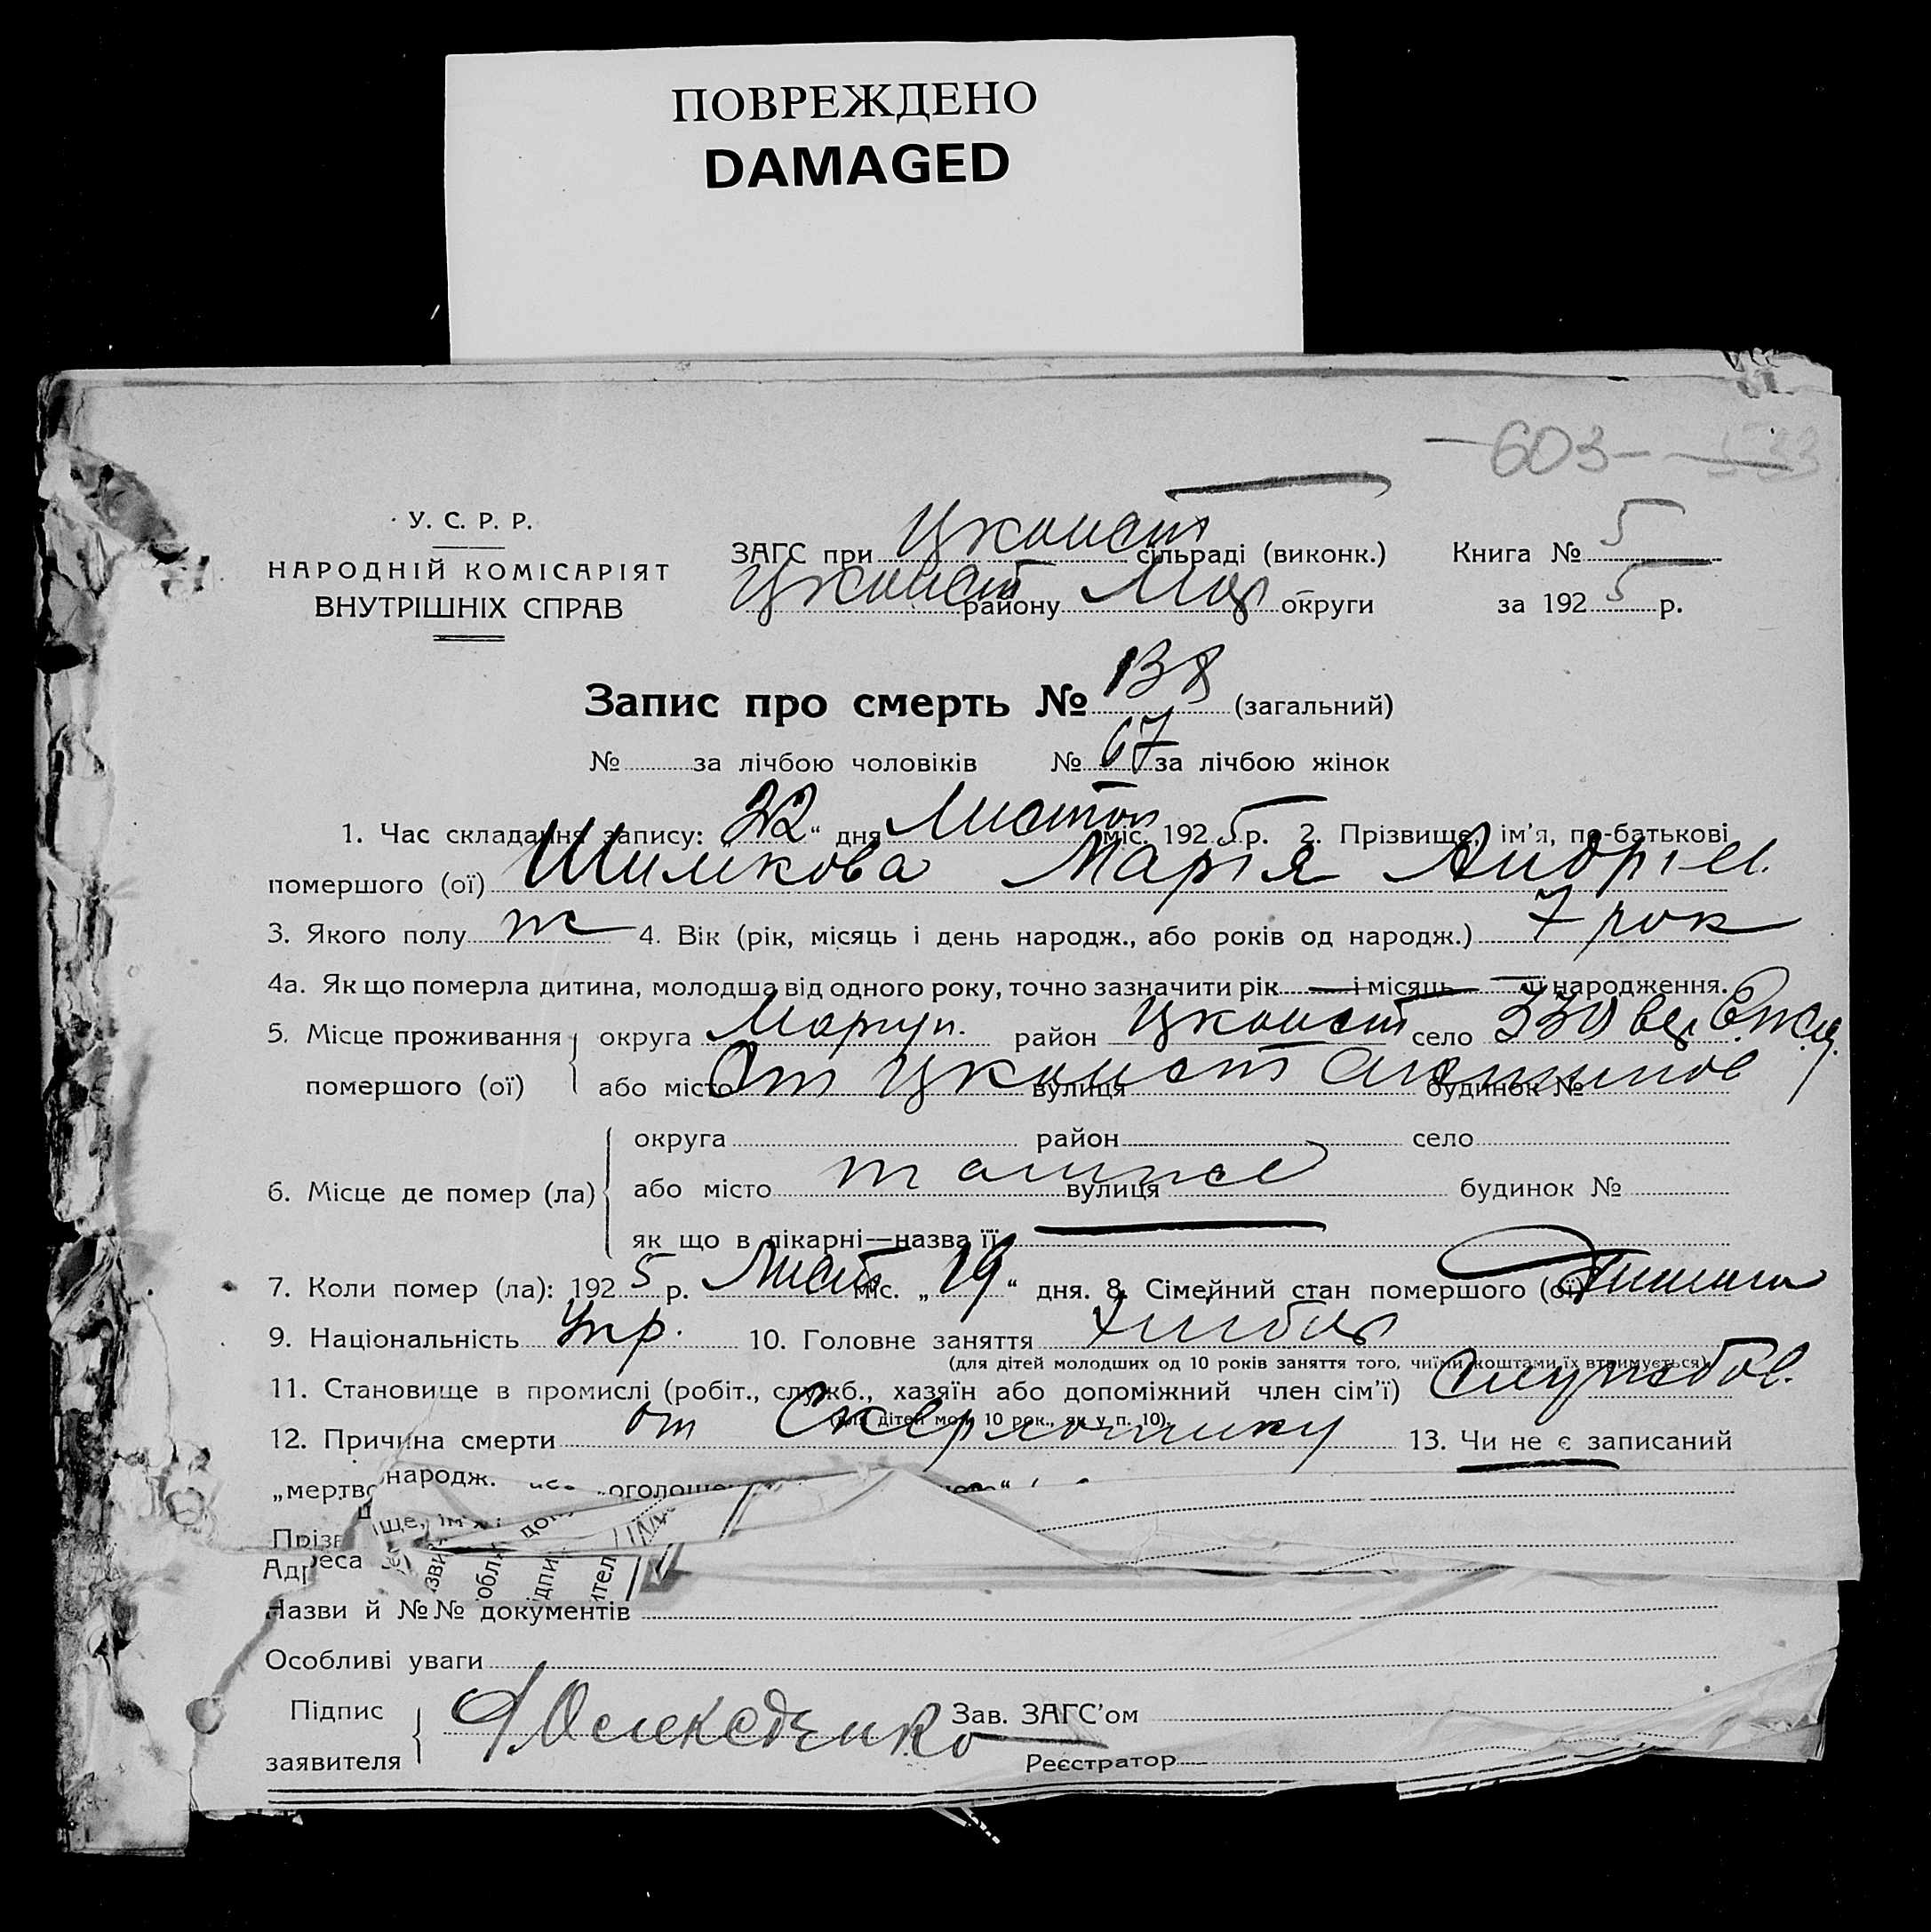 ПОВРЕЖДЕНО
DAMAGED
603
У. С. Р. Р.
НАРОДНІЙ КОМІСАРІЯТ
ВНУТРІШНІХ СПРАВ
ЗАГС при Цконст сільраді (виконк.)
Цконст району Мар округи
Книга № 5
за 1925 р.
Запис про смерть № 138 (загальний)
№ за лічбою чоловіків № 67 за лічбою жінок
1. Час складання запису: 22 “ дня Листоп міс. 1925 р. 2. Прізвище, ім’я, по-батькові
помершого (ої) Шилікова Марія Андрі
3. Якого полу ж 4. Вік (рік, місяць і день народж., або років од народж.) 7 рок
4а. Як що померла дитина, молодша від одного року, точно зазначити рік і місяць її народження.
5. Місце проживання помершого (ої) округа Маріуп. район Цконст село
або місто Ст Цконст вулиця будинок №
6. Місце де помер (ла) округа район село
або місто вулиця будинок №
як що в лікарні—назва її
7. Коли помер (ла): 1925 р. Лист міс. „19“ дня. 8. Сімейний стан помершого (ої)
9. Національність Укр. 10. Головне заняття
(для дітей молодших од 10 років заняття того, чиїми коштами їх втримується)
11. Становище в промислі (робіт., служб., хазяїн або допоміжний член сім’ї) Службов.
(для дітей мол. 10 рок., як у п. 10).
12. Причина смерти от Скерлотину 13. Чи не є записаний
народж.
Назви й №№ документів
Особливі уваги
Підпис заявителя
Зав. ЗАГС’ом
Реєстратор